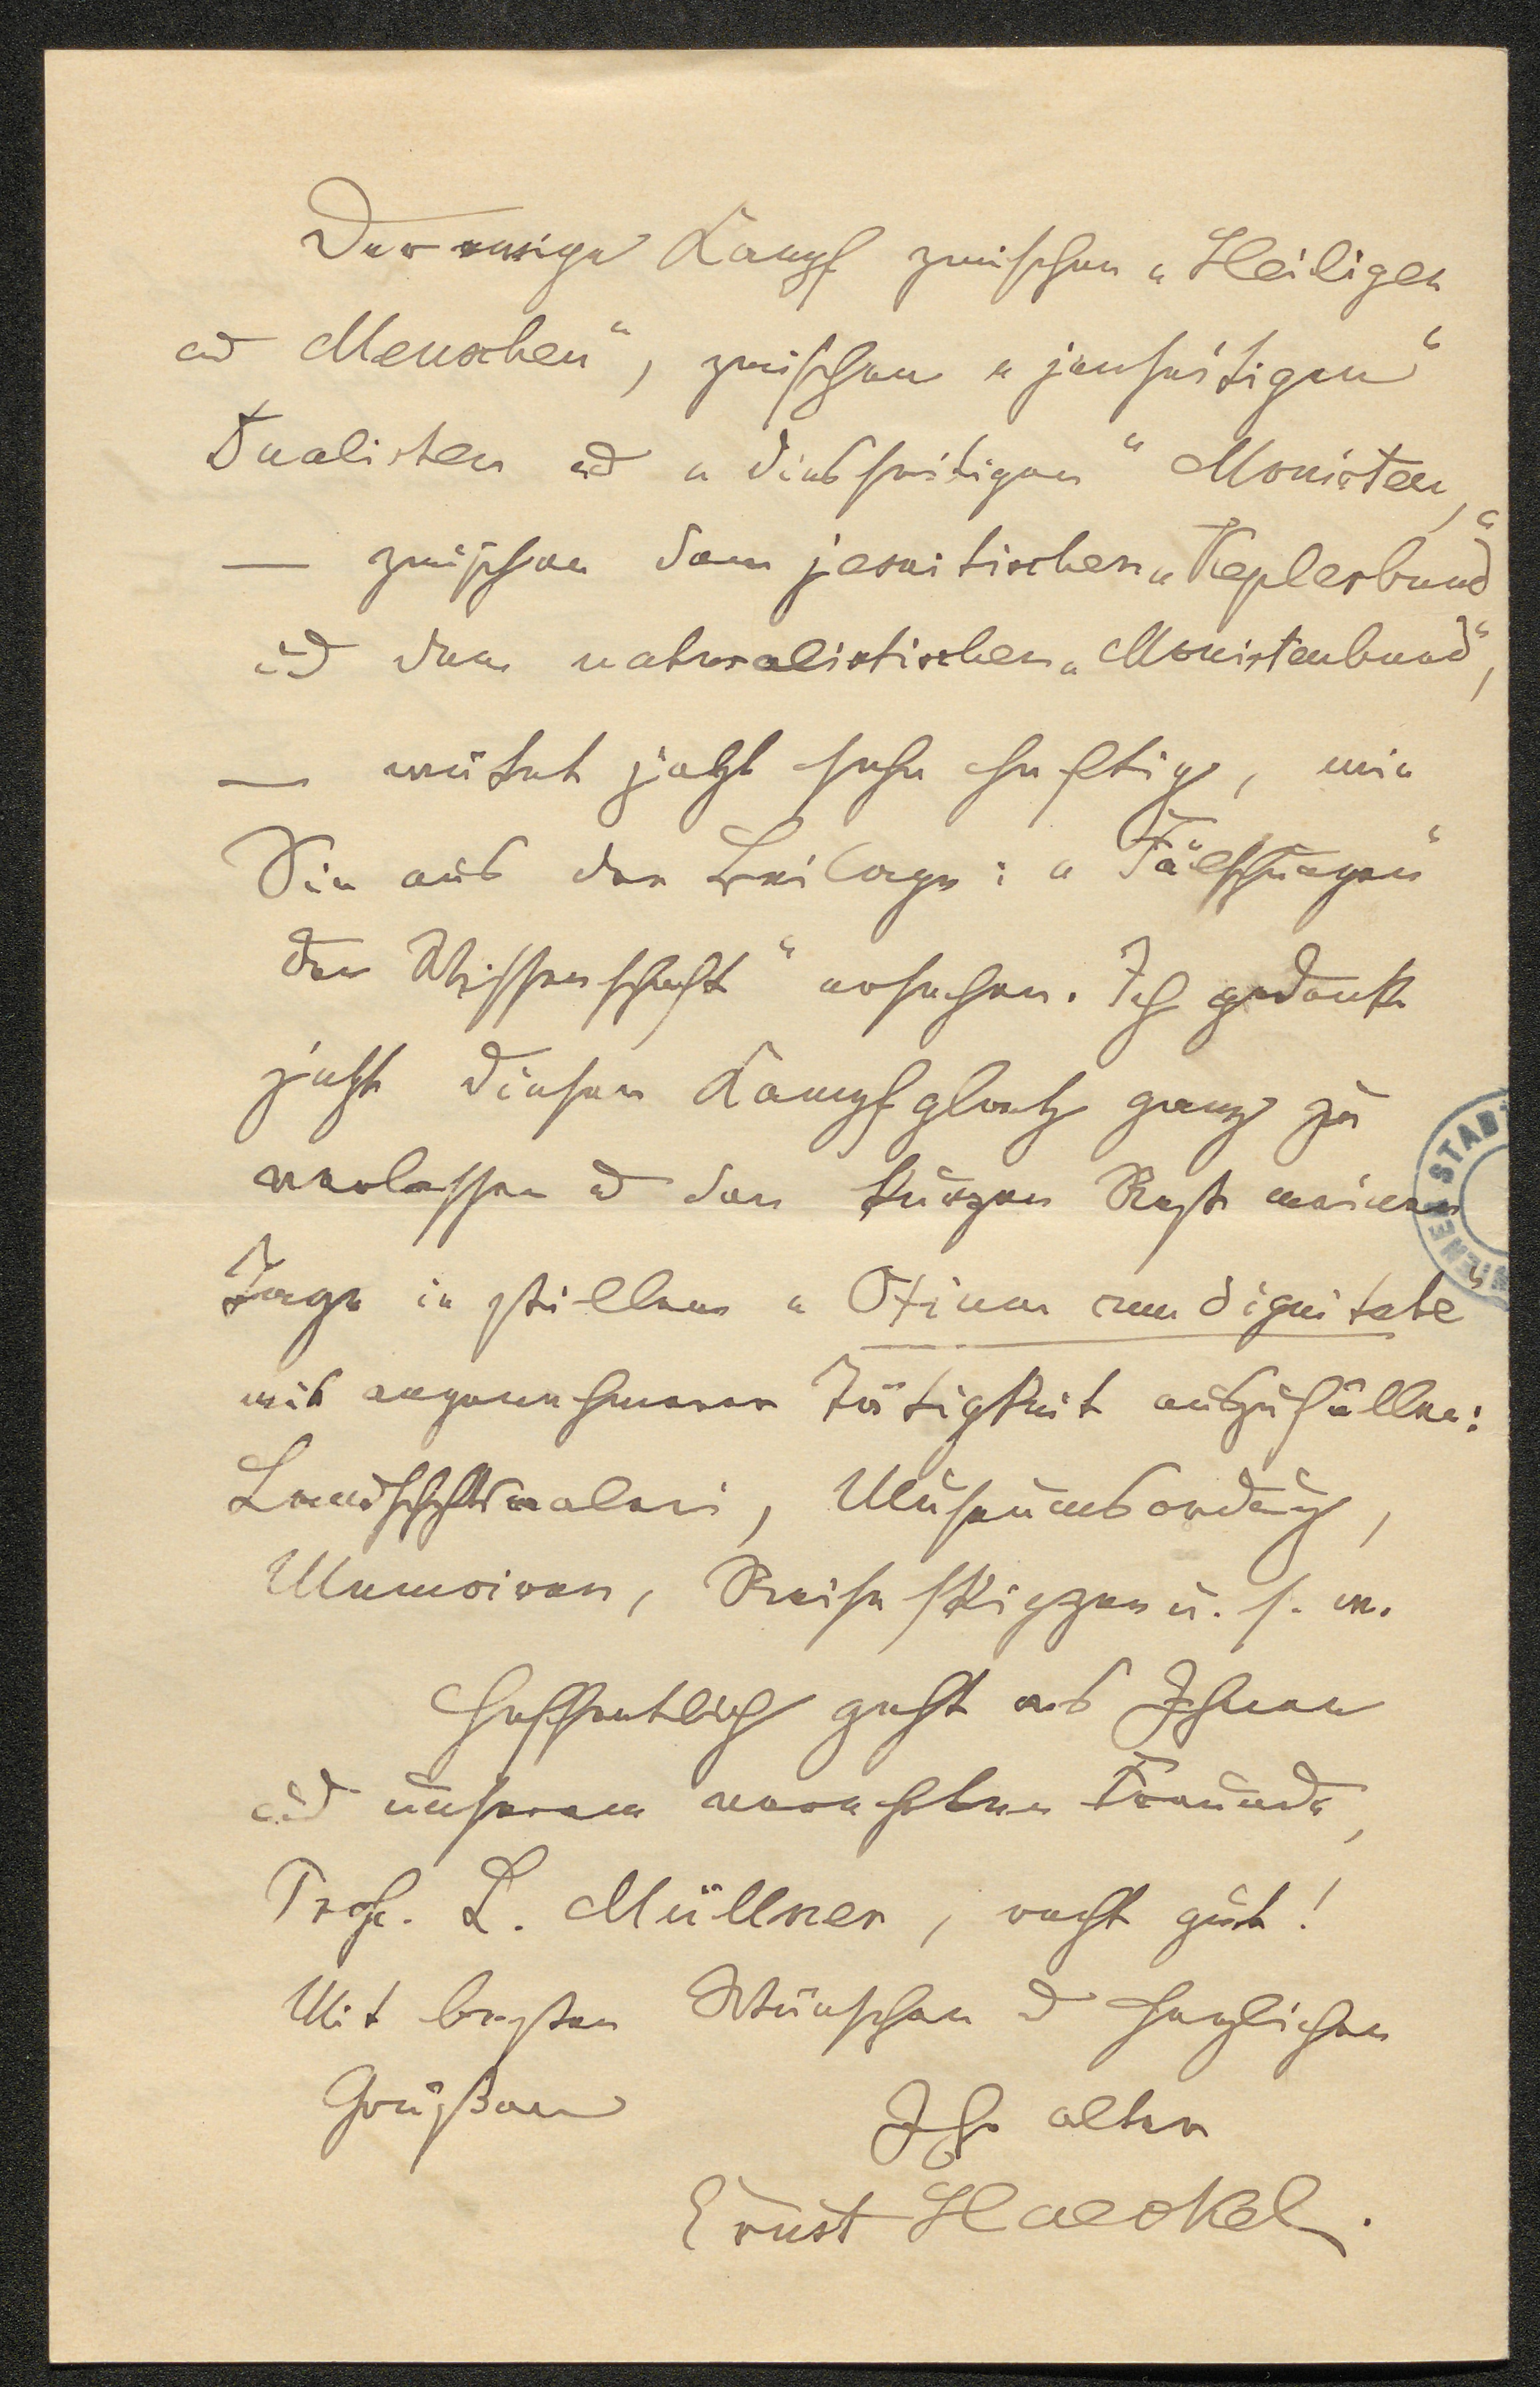 Der ewige Kampf zwischen „Heiligen
und Menschen“, zwischen „jenseitigen“
Dualisten und „diesseitigen“ Monisten,
— zwischen dem jesuitischen „Keplerbund“
und dem naturalistischen „Monistenbund“,
— wütet jetzt sehr heftig, wie
Sie aus der Beilage: „Fälschungen
der Wissenschaft“ ersehen. Ich gedenke
jetzt diesen Kampfplatz ganz zu
verlassen und den kurzen Rest meiner
Tage in stillem „Otium cum dignitate“
mit angenehmerer Tätigkeit auszufüllen:
Landschaftsmalerei, Museumsordnung,
Memoiren, Reiseskizzen u. s. w.
Hoffentlich geht es Ihnen
und unserem verehrten Freunde,
Prof. L. Müllner, recht gut!
Mit besten Wünschen und herzlichen
Grüßen
Ihr alter
Ernst Haeckel.
WIENER STADT